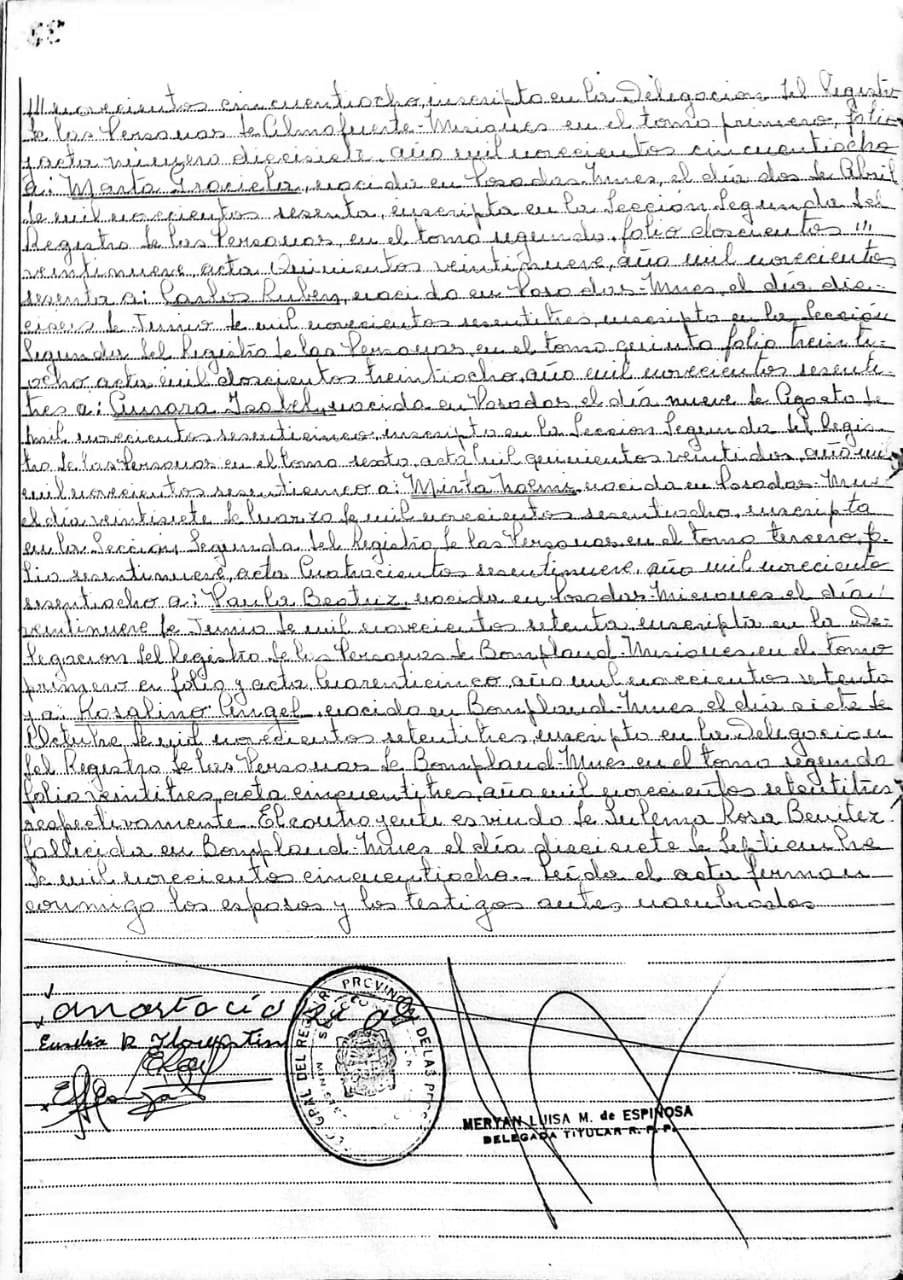 /// novecientos cincuentiocho, inscripto en la Delegación del Registro
de las Personas de Almafuerte-Misiones en el tomo primero, folio
y acta número diecisiete, año mil novecientos cincuentiocho
a: Marta Graciela, nacida en Posadas-Mnes, el día dos de Abril
de mil novecientos sesenta, inscripta en la Sección Segunda del
Registro de las Personas, en el tomo segundo, folio doscientos ///
veintinueve, acta Quinientos veintinueve, año mil novecientos
sesenta a: Carlos Ruben, nacido en Posadas-Mnes, el día die-
ciseis de Junio de mil novecientos sesentitres, inscripto en la Sección
Segunda del Registro de las Personas, en el tomo quinto folio treinti-
ocho acta mil doscientos treintiocho, año mil novecientos sesenti-
tres a: Isabel, nacida en Posadas, el día nueve de Agosto de
mil novecientos sesenticinco, inscripta en la Seccion Segunda del Regis-
tro de las Personas en el tomo sexto, acta mil quinientos veintidos, año mil
mil novecientos sesenticinco a: Mirta Noemi, nacida en Posadas-Mnes
el día veintisiete de Marzo de mil novecientos sesentiocho, inscripta
en la Sección Segunda del Registro de las Personas en el tomo tercero, fo-
lio sesentinueve, acta Cuatrocientos sesentinueve, año mil noveciento
sesentiocho a: Paula Beatriz, nacida en Posadas-Misiones el día
veintinueve de Junio de mil novecientos setenta, inscripta en la De-
legación del Registro de las Personas de Bompland-Misiones en el tomo
primero en folio y acta Cuarenticinco, año mil novecientos setenta
y a: Rosalino Angel, nacido en Bompland-Mnes, el día siete de
Octubre de mil novecientos setentitres, inscripto en la Delegacion
del Registro de las Personas de Bompland-Mnes en el tomo segundo
folio veintitres, acta cincuentitres, año mil novecientos setentitres
respectivamente. El contrayente es viudo de Sulema Rosa Benitez
fallecida en Bompland-Mnes el día diecisiete de Septiembre
de mil novecientos cincuentiocho.- Leída el acta firman
conmigo los esposos y los testigos antes nombrados
anastacio
MERYAN LUISA M. de ESPINOSA
DELEGADA TITULAR R. P. P.